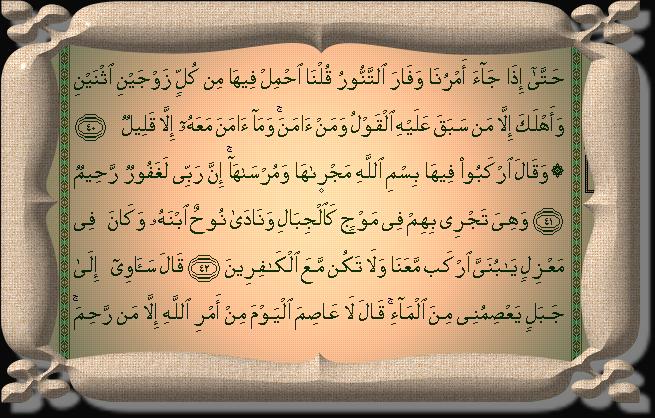 حَتَّىٰٓ إِذَا جَآءَ أَمْرُنَا وَفَارَ ٱلتَّنُّورُ قُلْنَا ٱحْمِلْ فِيهَا مِن كُلٍّ زَوْجَيْنِ ٱثْنَيْنِ
وَأَهْلَكَ إِلَّا مَن سَبَقَ عَلَيْهِ ٱلْقَوْلُ وَمَنْ ءَامَنَ ۚ وَمَآ ءَامَنَ مَعَهُۥٓ إِلَّا قَلِيلٌ ٤٠
۞ وَقَالَ ٱرْكَبُوا۟ فِيهَا بِسْمِ ٱللَّهِ مَجْر۪ىٰهَا وَمُرْسَىٰهَآ ۚ إِنَّ رَبِّى لَغَفُورٌ رَّحِيمٌ
٤١ وَهِىَ تَجْرِى بِهِمْ فِى مَوْجٍ كَٱلْجِبَالِ وَنَادَىٰ نُوحٌ ٱبْنَهُۥ وَكَانَ فِى
مَعْزِلٍ يَٰبُنَىَّ ٱرْكَب مَّعَنَا وَلَا تَكُن مَّعَ ٱلْكَٰفِرِينَ ٤٢ قَالَ سَـَٔاوِىٓ إِلَىٰ
جَبَلٍ يَعْصِمُنِى مِنَ ٱلْمَآءِ ۚ قَالَ لَا عَاصِمَ ٱلْيَوْمَ مِنْ أَمْرِ ٱللَّهِ إِلَّا مَن رَّحِمَ ۚ